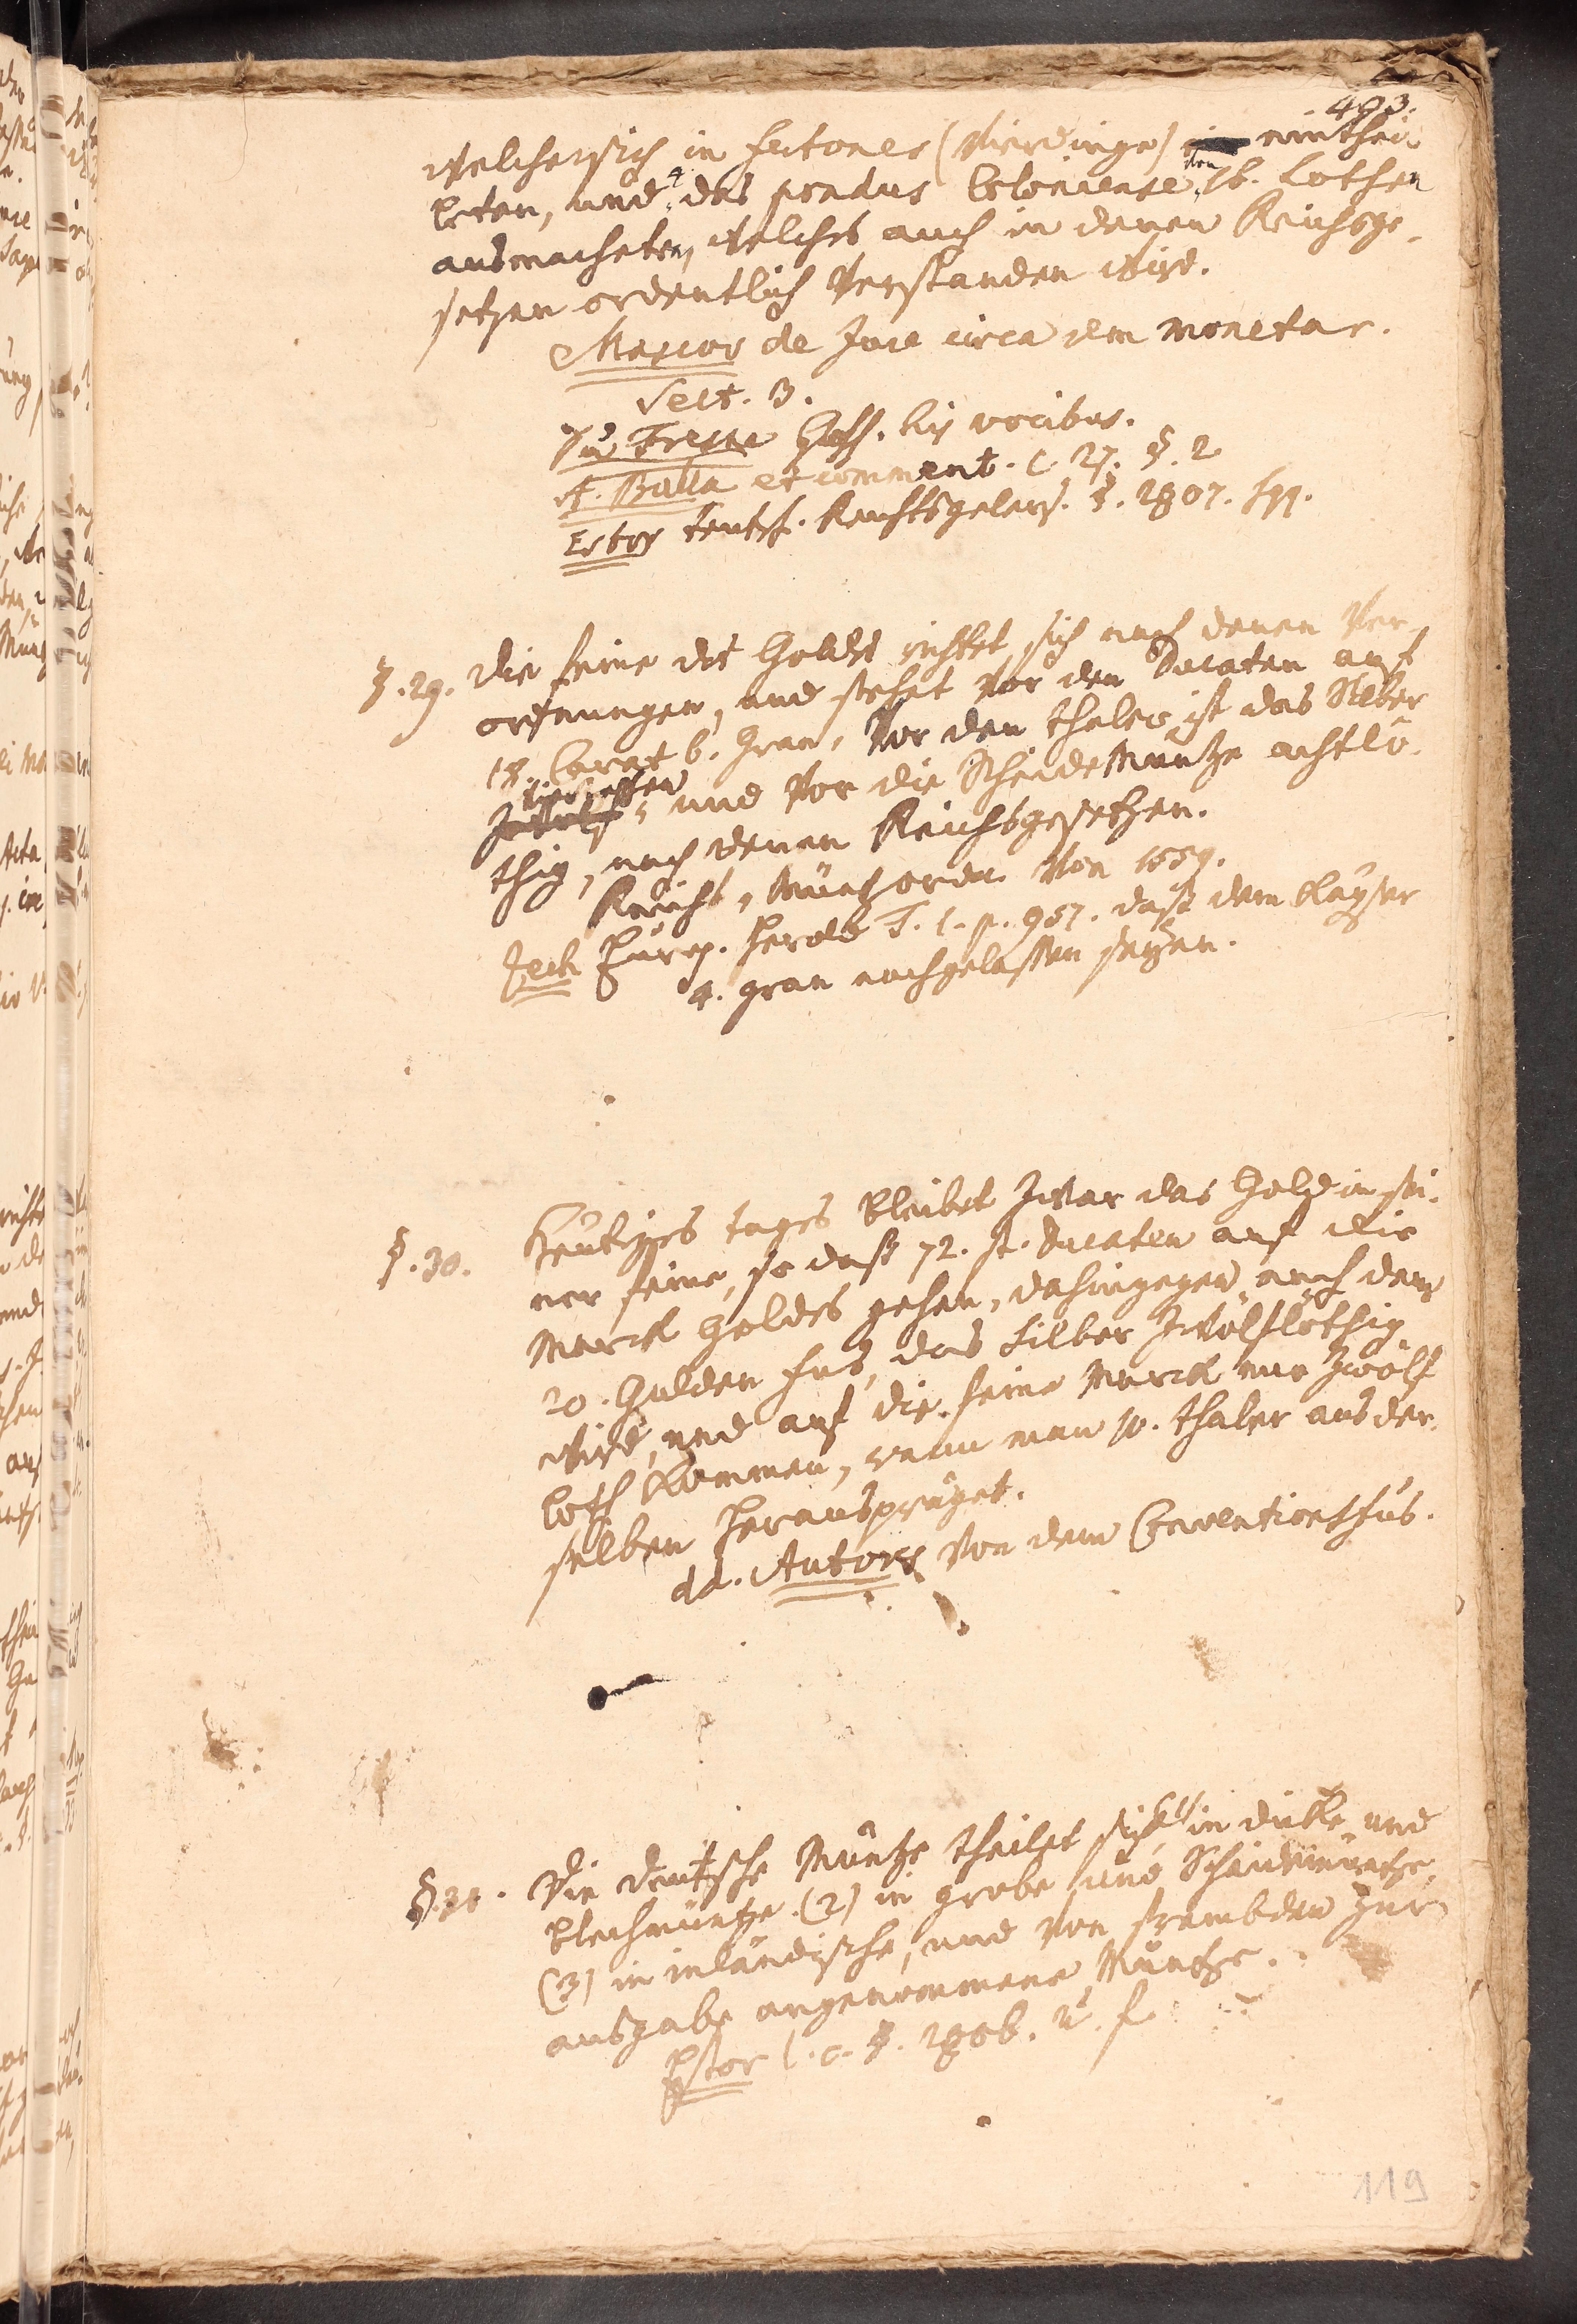 493.
welche sich in fertones (Vierdinge) einthei-
leten, und 4 das pondus Coloniense den 16. Lothen
ausmacheten, welches auch in denen Reichsge-
setzen ordentlich Verstanden wird.
Mascov de Jure circa rem monetar.
Sect. 3.
Du Fresne his vocibus.
A. Bulla et comment. C. 27. §. 2
Estor teutsch. Rechtsgelers. §. 2807. sqq.
§. 29. Die feine des Goldes richtet sich nach denen Ver-
ordnungen, und stehet Vor den Ducaten auf
18. Carat 6. Gran, Vor den thaler ist das Silber
vierzehen, und Vor die ScheideMüntze achtlö-
thig, nach denen Reichsgesetzen.
Reichs, Müntzordn. Von 1559.
Zech Europ. Herold T. 1. p. 957. daß dem Kayser
4. gran nachgelassen seyen.
§. 30. Heutiges tages bleibet Zwar das Gold in sei-
ner feine, so daß 72. st. Ducaten auf die
Marck Goldes gehen, dahingegen nach dem
20. Gulden fus, das Silber Zwölflöthig
wird, und auf die feine Marck nur Zwölf
Loth kommen, wann man 10. thaler aus der-
selben herauspräget.
dd. Autores von dem Conventionsfus.
§. 31. Die deutsche Müntze theilet sich (1) in dicke und
blechmüntze. (2) in grobe und Scheidemüntze,
(3) in inländische, und Von frembden Zur
ausgabe angenommene Müntze.
Estor l. c. §. 2806. u. f.
119